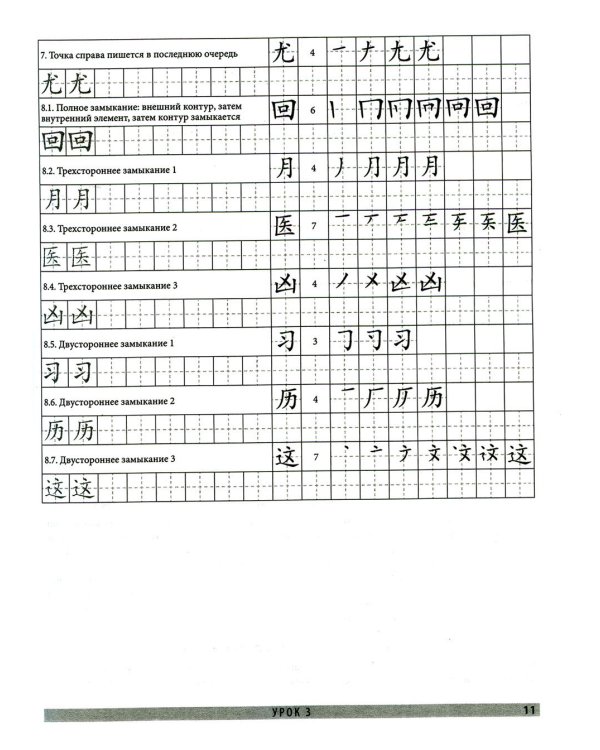 7. Точка справа пишется в последнюю очередь 尤 4 一 ナ 尤 尤
尤 尤
8.1. Полное замыкание: внешний контур, затем внутренний элемент, затем контур замыкается 回 6 丨 冂 回 回
回 回
8.2. Трехстороннее замыкание 1 月 4 丿 月 月 月
月 月
8.3. Трехстороннее замыкание 2 医 7 一 医
医 医
8.4. Трехстороннее замыкание 3 凶 4 丿 乂 凶 凶
凶 凶
8.5. Двустороннее замыкание 1 习 3 习 习
习 习
8.6. Двустороннее замыкание 2 历 4 一 厂 历 历
历 历
8.7. Двустороннее замыкание 3 这 7 丶 亠 文 这
这 这
УРОК 3 11